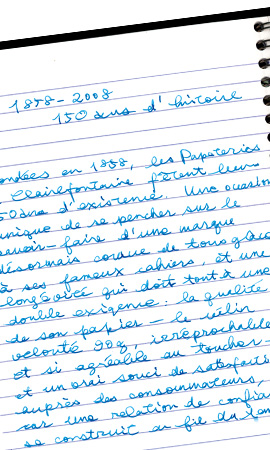 1858-2008
150 ans d'histoire
ondées en 1858, les Papeteries
Clairefontaine fêtent leurs
50 ans d'existence. Une occasion
unique de se pencher sur le
savoir-faire d'une marque
désormais connue de tous grâce
à ses fameux cahiers, et une
longévité qui doit tout à une
double exigence : la qualité
de son papier - le vélin
velouté 90g, irréprochable
et si agréable au toucher -
et un vrai souci de satisfaction
auprès des consommateurs,
car une relation de confiance
se construit au fil du temps